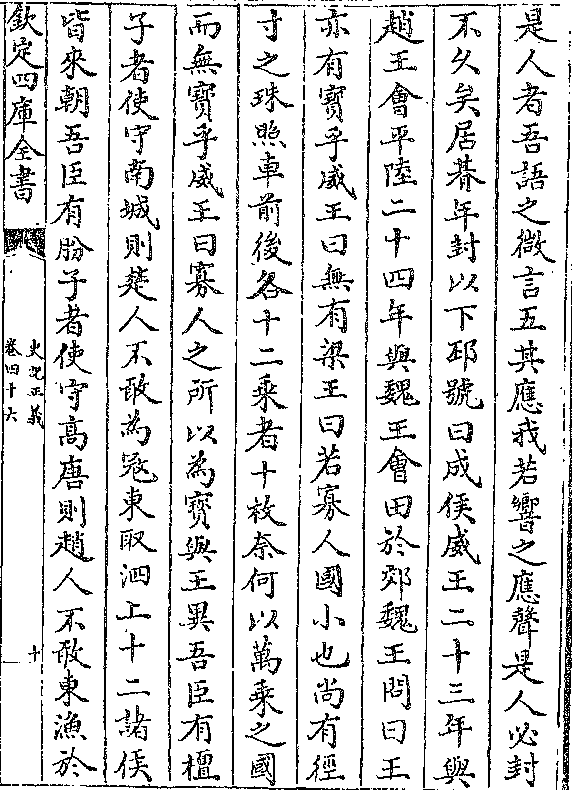 是人者吾語之微言五其應我若響之應聲是人必封
不久矣居朞年封以下邳號曰成侯威王二十三年與
趙王會平陸二十四年與魏王會田於郊魏王問曰王
亦有寳乎威王曰無有梁王曰若寡人國小也尚有徑
寸之珠照車前後各十二乘者十枚奈何以萬乘之國
而無寳乎威王曰寡人之所以為寳與王異吾臣有檀
子者使守南城則楚人不敢為冦東取泗上十二諸侯
皆來朝吾臣有肦子者使守髙唐則趙人不敢東漁於
欽定四庫全書
史記正義
卷四十六
十